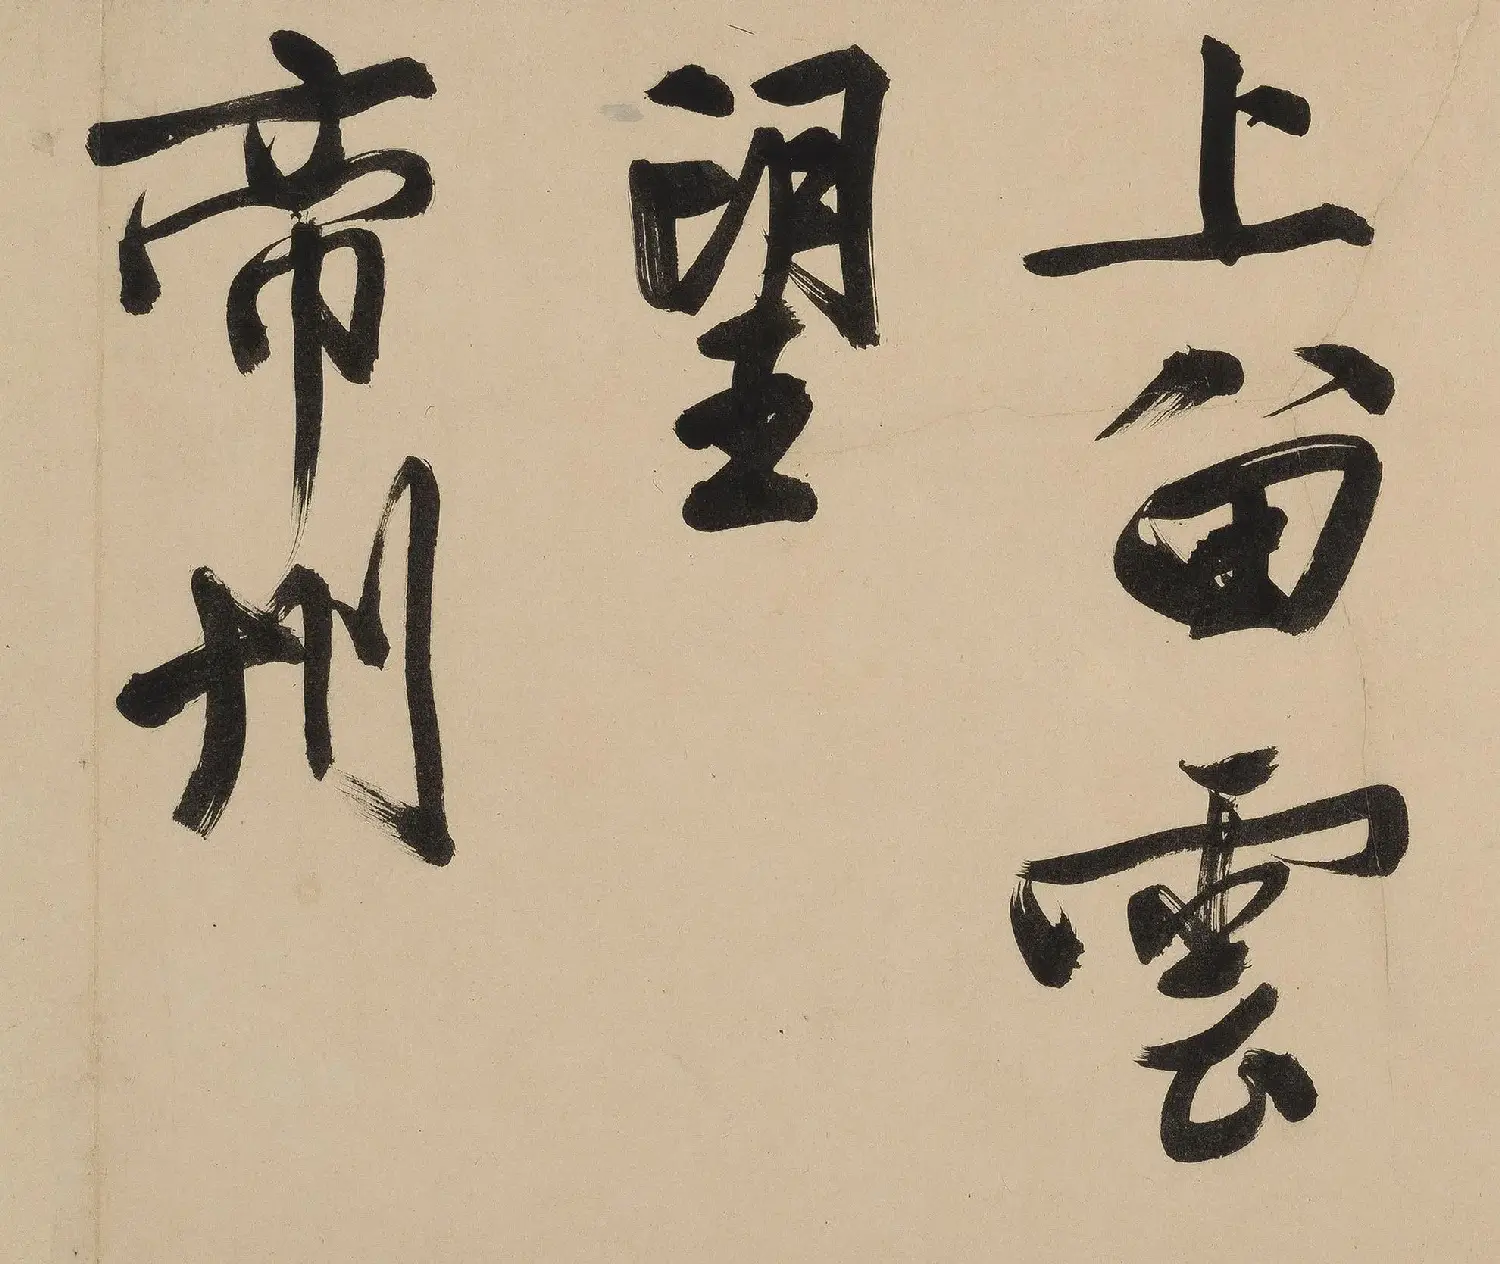 上留雲
望
帝州